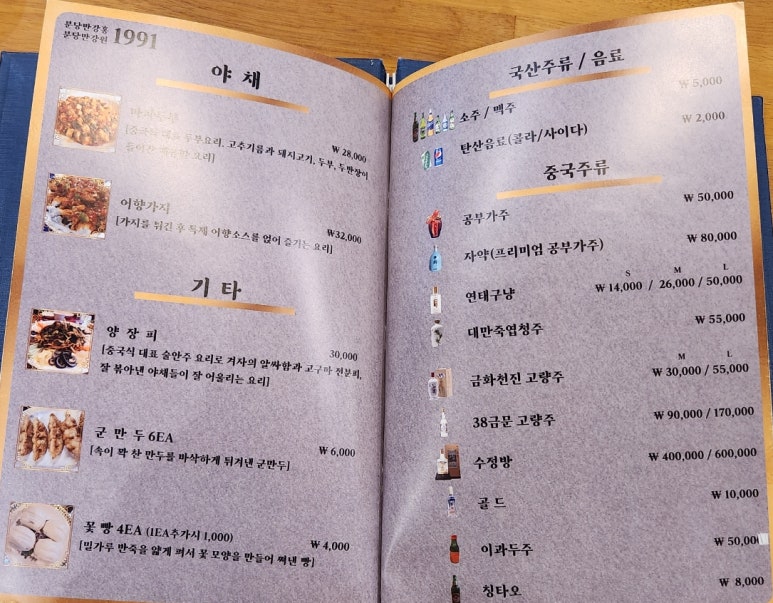 분당반강홍
분당반강원 1991
야 채
마파두부
₩ 28,000
두부요리, 고추기름과 돼지고기, 두부, 두반장이
요리]
어향가지
₩32,000
[가지를 튀긴 후 특제 어향소스를 얹어 즐기는 요리]
기 타
양 장 피
30,000
[중국식 대표 술안주 요리로 겨자의 알싸함과 고구마 전분피,
잘 볶아낸 야채들이 잘 어울리는 요리]
군 만 두 6EA
₩ 6,000
[속이 꽉 찬 만두를 바삭하게 튀겨낸 군만두]
꽃 빵 4EA (1EA추가시 1,000)
₩ 4,000
[밀가루 반죽을 얇게 펴서 꽃 모양을 만들어 쪄낸 빵]
국산주류 / 음료
소주 / 맥주 ₩ 5,000
탄산음료(콜라/사이다) ₩ 2,000
중국주류
공부가주 ₩ 50,000
자약(프리미엄 공부가주) ₩ 80,000
S M L
연태구냥 ₩ 14,000 / 26,000 / 50,000
대만죽엽청주 ₩ 55,000
M L
금화천진 고량주 ₩ 30,000 / 55,000
38금문 고량주 ₩ 90,000 / 170,000
수정방 ₩ 400,000 / 600,000
골드 ₩ 10,000
이과두주 ₩ 50,00
칭타오 ₩ 8,000